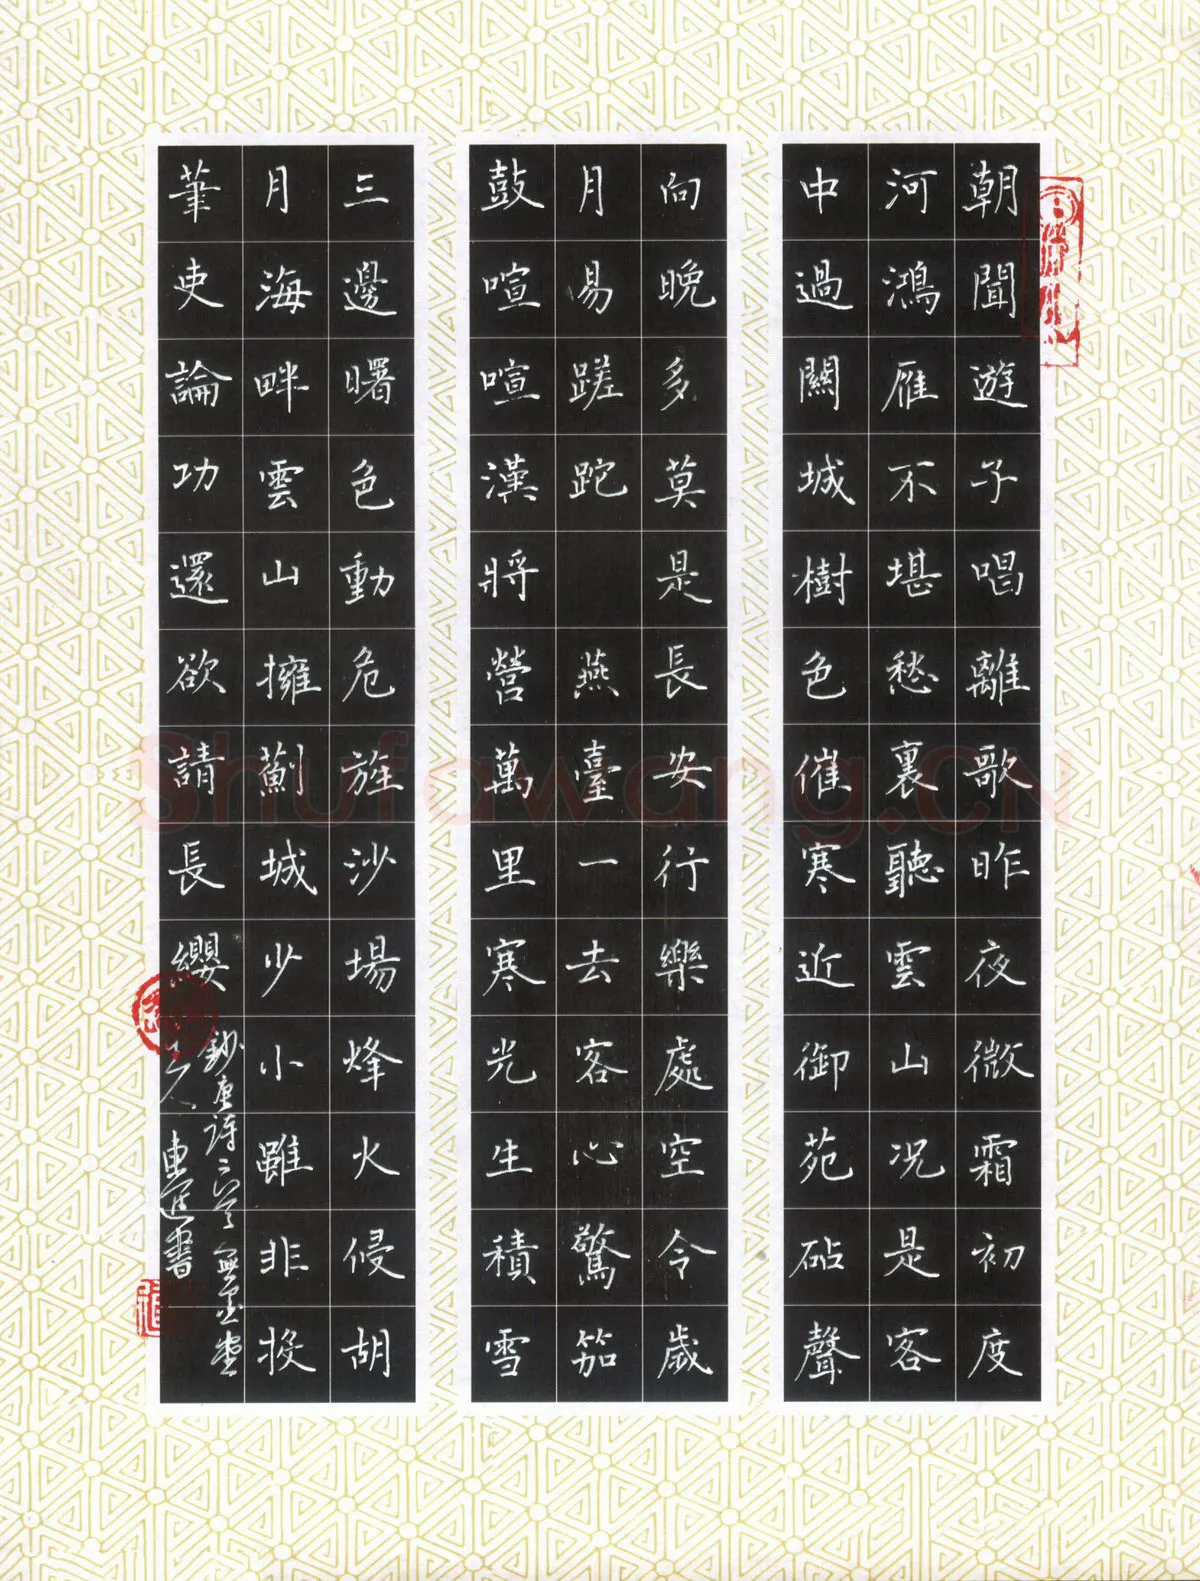 朝聞遊子唱離歌昨夜微霜初度
河鴻雁不堪愁裏聽雲山况是客
中過關城樹色催寒近御苑砧聲
向晚多莫是長安行樂處空令歲
月易蹉跎 燕臺一去客心驚笳
鼓喧喧漢將營萬里寒光生積雪
三邊曙色動危旌沙場烽火侵胡
月海畔雲山擁薊城少小雖非投
筆吏論功還欲請長纓
鈔唐詩二首
主人 東 書
Shufawang.CN